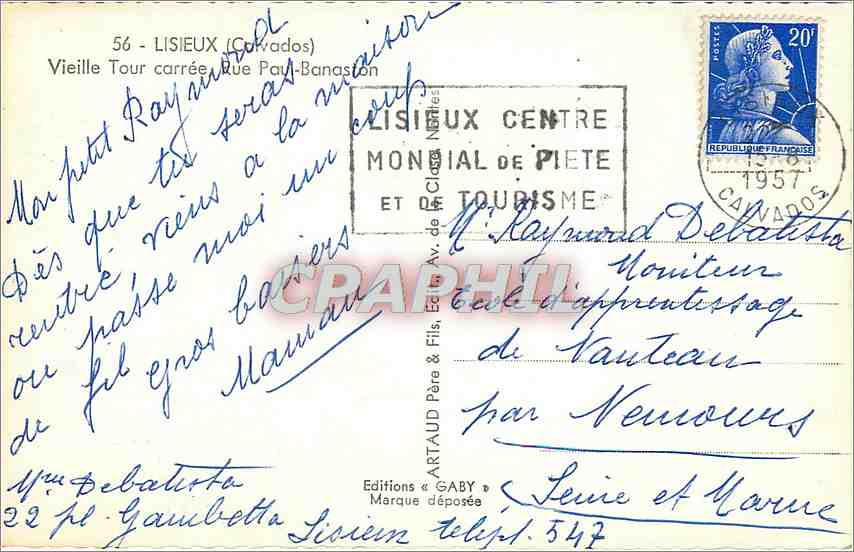 56 - LISIEUX (Calvados)
Vieille Tour carrée Rue Paul-Banaston
Mon petit Raymond
Dès que tu seras
rentré, viens a la maison
ou passe moi un coup
de fil gros baisers
Maman
Mme Debatista
22 pl. Gambetta
Lisieux téléph. 547
LISIEUX CENTRE
MONDIAL DE PIETE
ET DE TOURISME
POSTES
20F
REPUBLIQUE FRANÇAISE
1957
CALVADOS
Mr Raymond Debatista
Moniteur
Ecole d'apprentissage
de Nanteau
par Nemours
(Seine et Marne
ARTAUD Père & Fils, Edit., Av. de la Close, Nantes
Editions « GABY »
Marque déposée
CPAPHIL